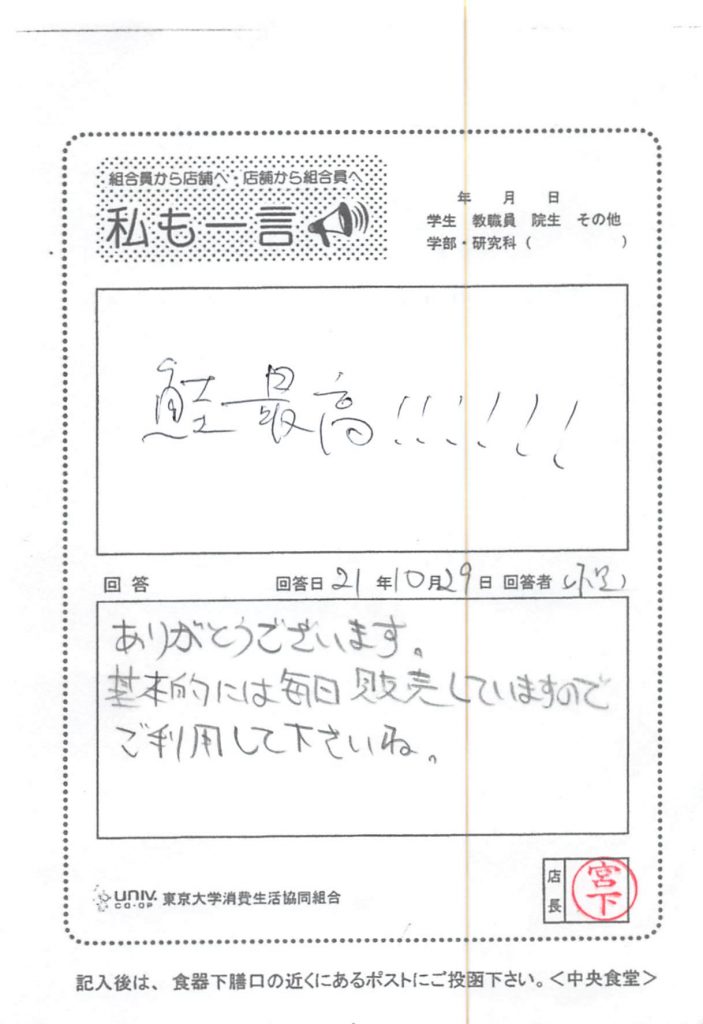 組合員から店舗へ・店舗から組合員へ
私も一言
年 月 日
学生 教職員 院生 その他
学部・研究科( )
鮭最高!!!!!!!
回答 回答日 21年10月29日 回答者
ありがとうございます。
基本的には毎日販売していますので
ご利用して下さいね。
店長 宮下
UNIV. CO-OP 東京大学消費生活協同組合
記入後は、食器下膳口の近くにあるポストにご投函下さい。<中央食堂>